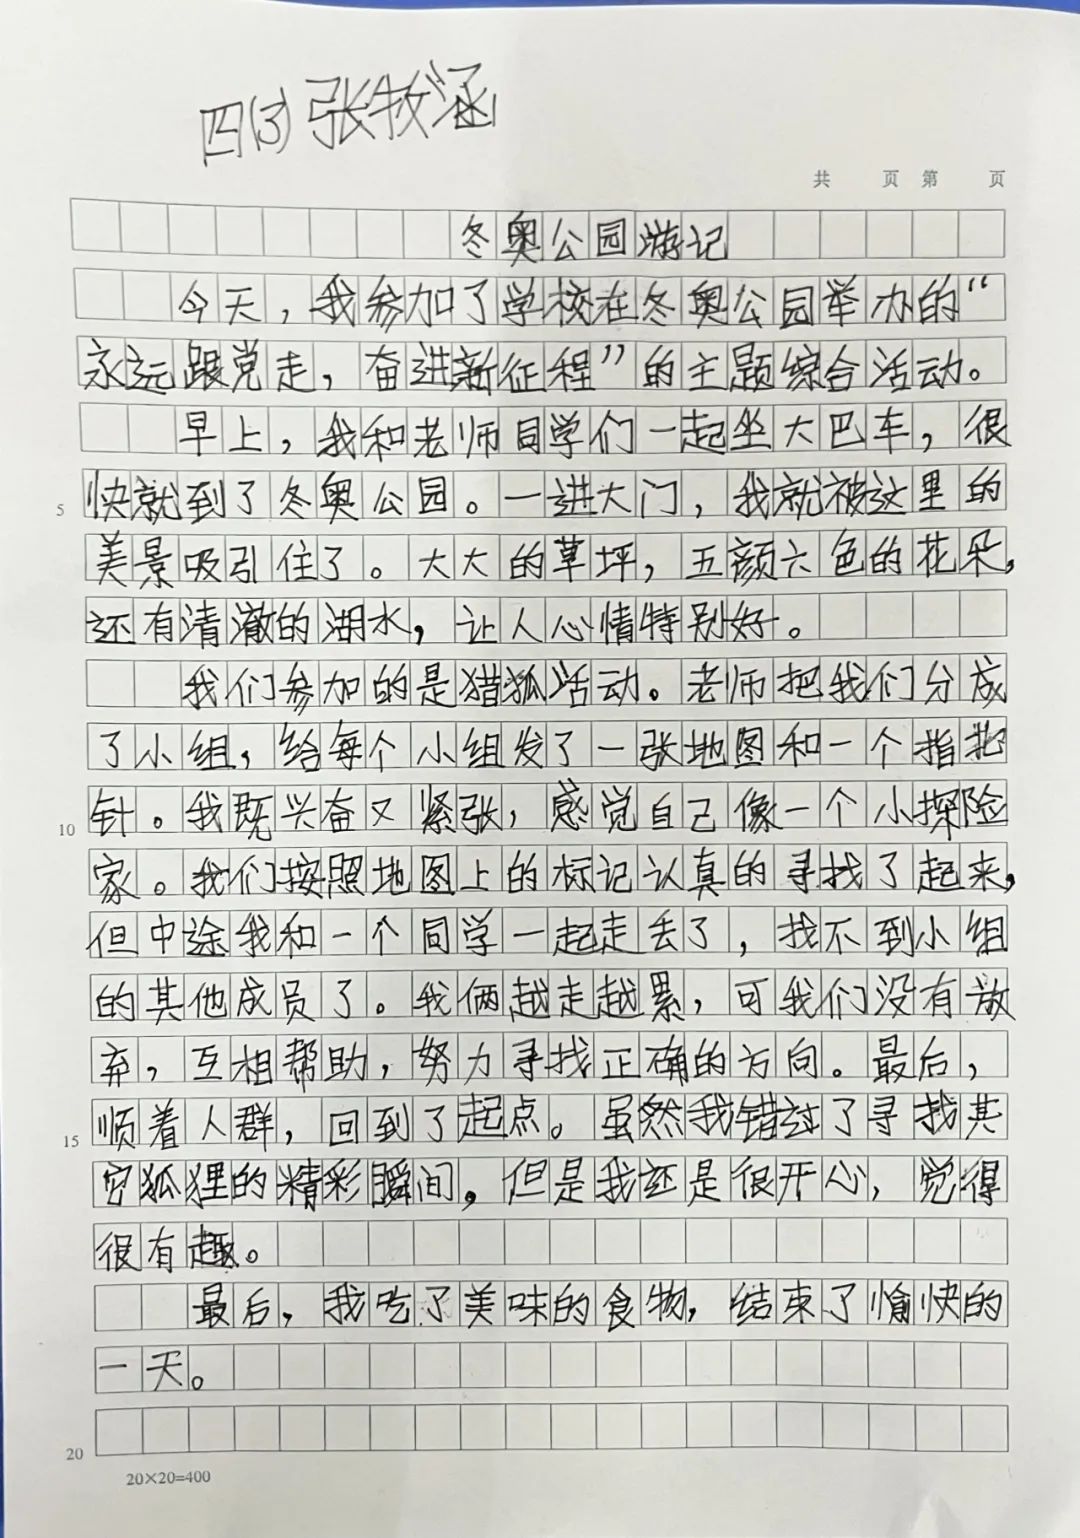 四(3) 张牧涵
共 页 第 页
冬奥公园游记
今天，我参加了学校在冬奥公园举办的“
永远跟党走，奋进新征程”的主题综合活动。
早上，我和老师同学们一起坐大巴车，很
5 快就到了冬奥公园。一进大门，我就被这里的
美景吸引住了。大大的草坪，五颜六色的花朵，
还有清澈的湖水，让人心情特别好。
我们参加的是猎狐活动。老师把我们分成
了小组，给每个小组发了一张地图和一个指北
10 针。我既兴奋又紧张，感觉自己像一个小探险
家。我们按照地图上的标记认真的寻找了起来，
但中途我和一个同学一起走丢了，找不到小组
的其他成员了。我俩越走越累，可我们没有放
弃，互相帮助，努力寻找正确的方向。最后，
15 顺着人群，回到了起点。虽然我错过了寻找其
它狐狸的精彩瞬间，但是我还是很开心，觉得
很有趣。
最后，我吃了美味的食物，结束了愉快的
一天。
20
20×20=400